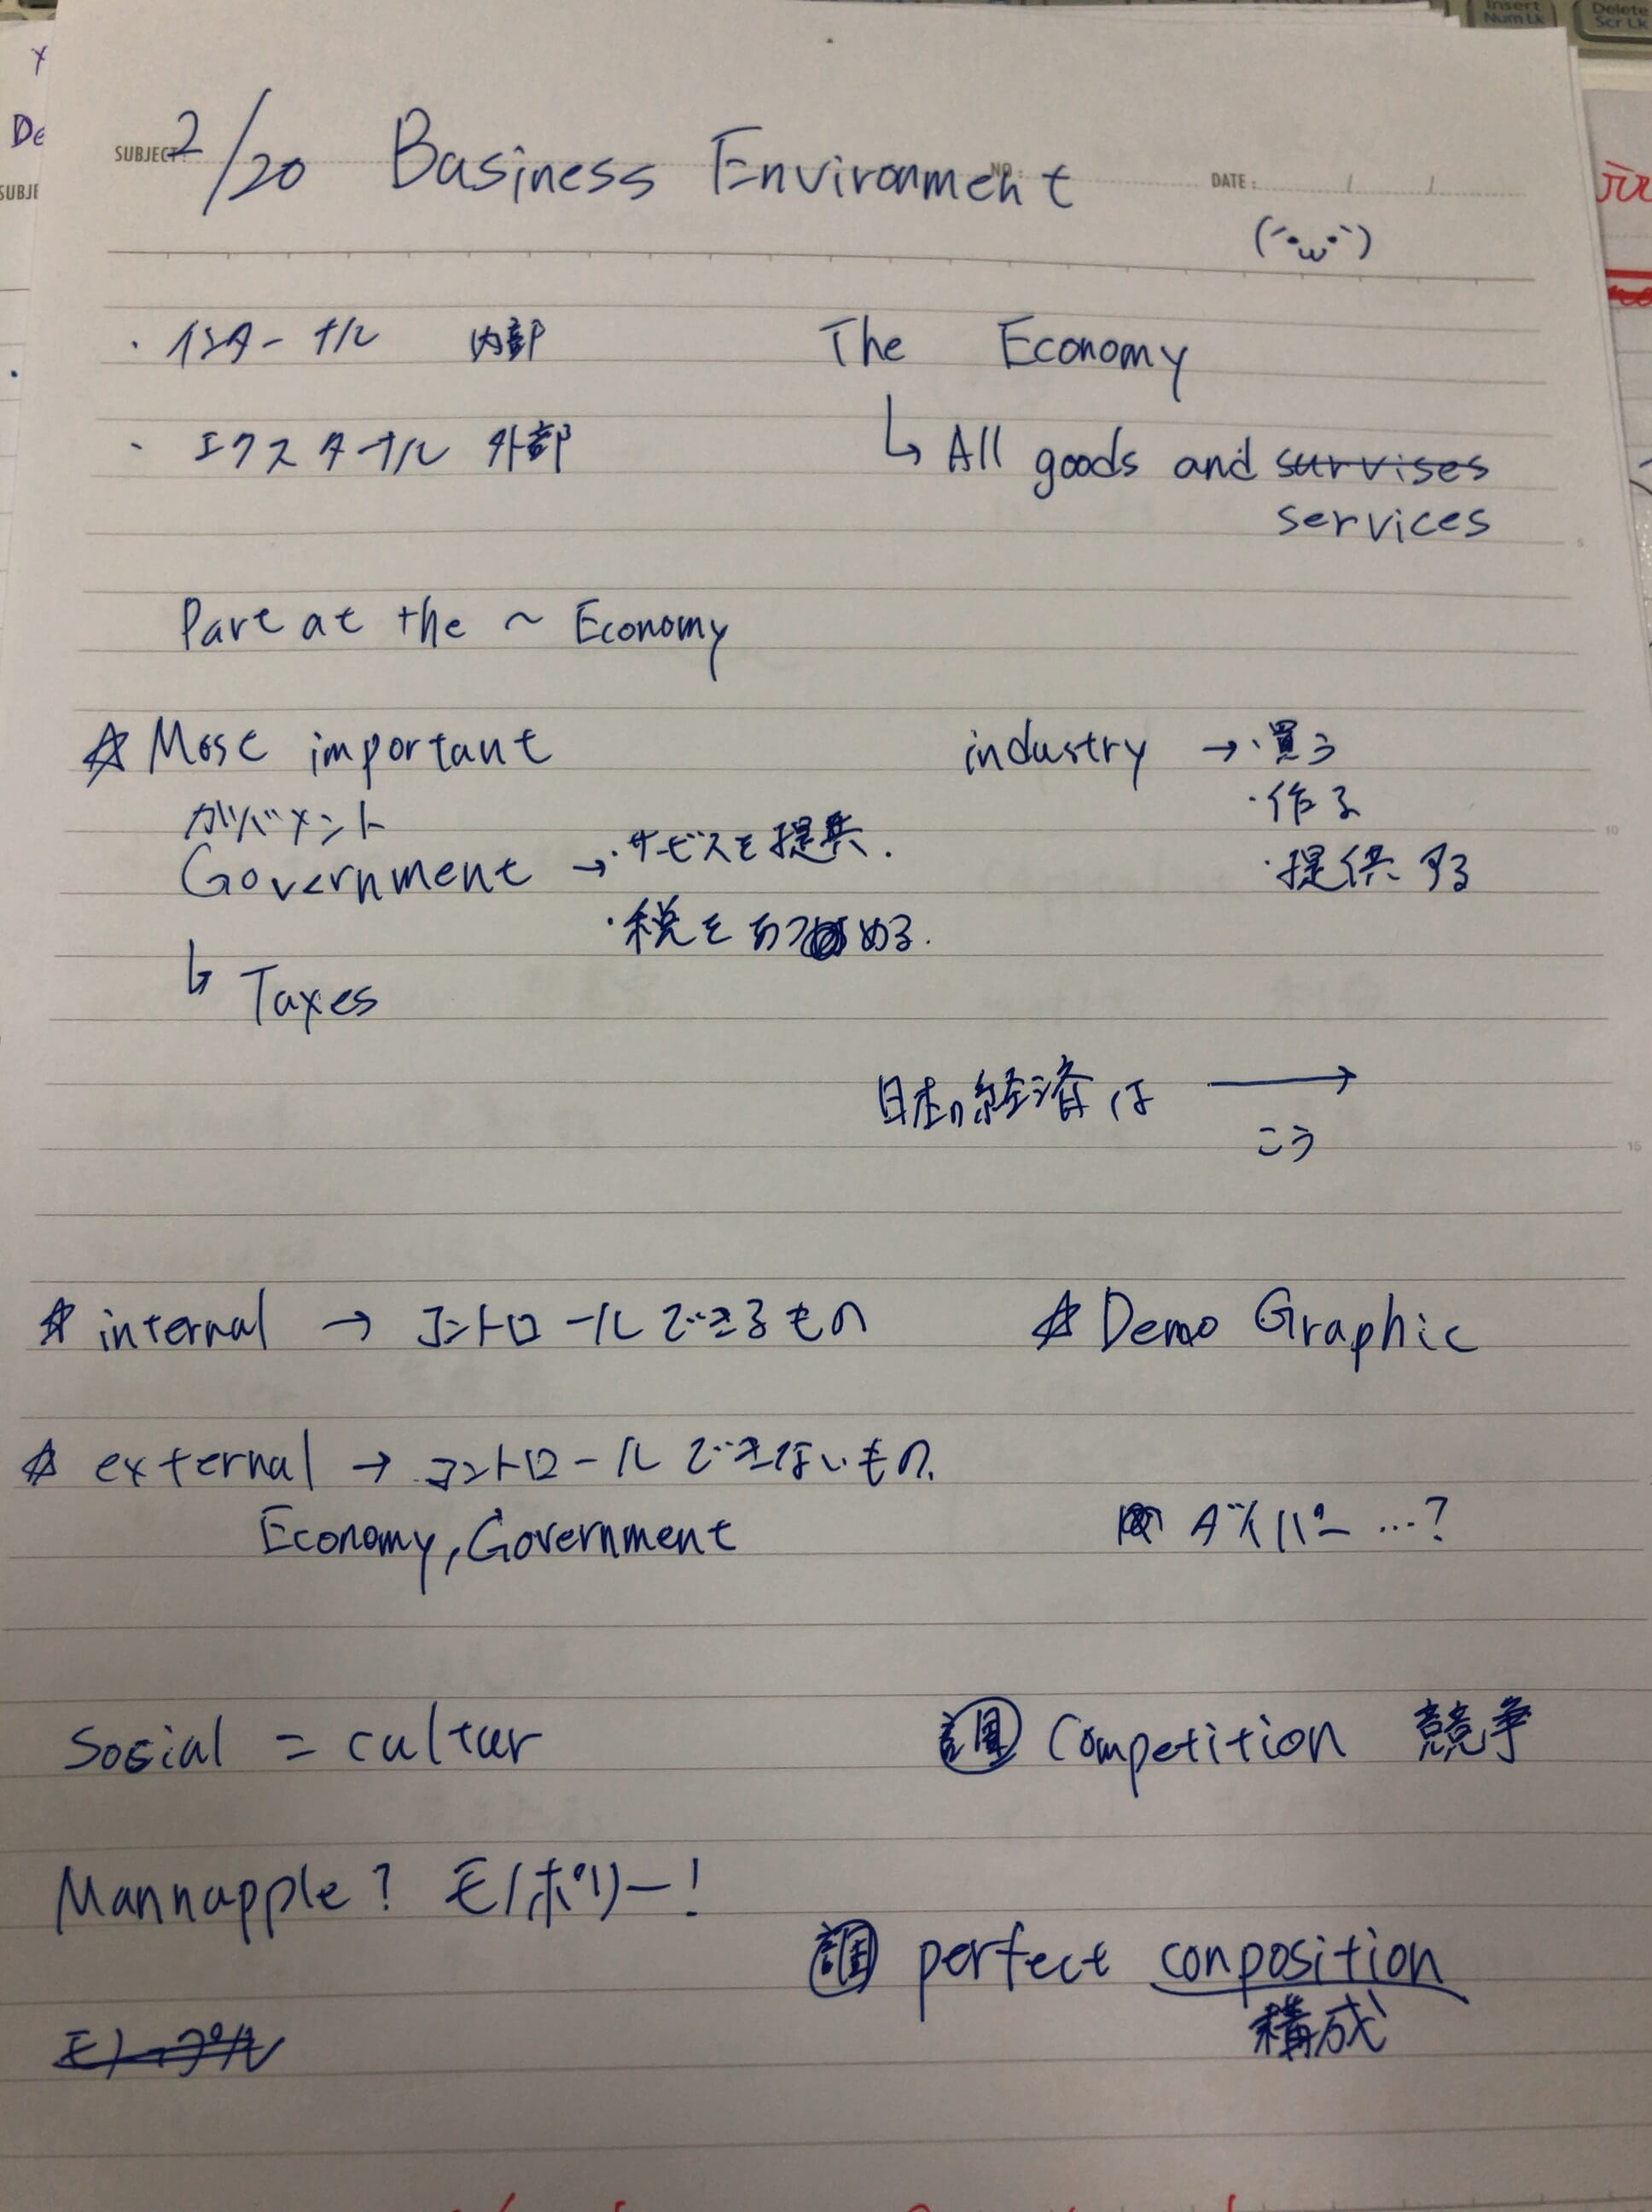 Insert
Num Lk
Delete
Scr Lk
De
SUBJE
SUBJECT:
NO.:
DATE: / /
2/20 Business Environment
(´•ω•`)
・インターナル 内部
・エクスターナル 外部
The Economy
↳ All goods and survises
services
Part at the ~ Economy
☆ Most important
ガバメント
Government →・サービスを提供.
・税をあつめる.
↳ Taxes
industry →・買う
・作る
・提供する
日本の経済は →
こう
☆ internal → コントロールできるもの
☆ external → コントロールできないもの.
Economy, Government
☆ Demo Graphic
ダイパー …?
Sosial = cultur
Mannapple? モノポリー!
モノープル
調 Competition 競争
調 perfect conposition
構成
5
10
15